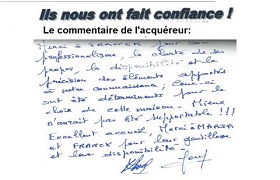 Ils nous ont fait confiance !
Le commentaire de l'acquéreur:
Merci à FRANCK pour son
professionnalisme, la clarté de ses
propos, la disponibilité et la
précision des éléments apportés
à notre connaissance ; ceux-ci
ont été déterminants pour le
choix de cette maison. Mieux
n'aurait pas été supportable !!!
Excellent accueil, Merci à MARSA
et FRANCK pour leur gentillesse
et leur disponibilité.